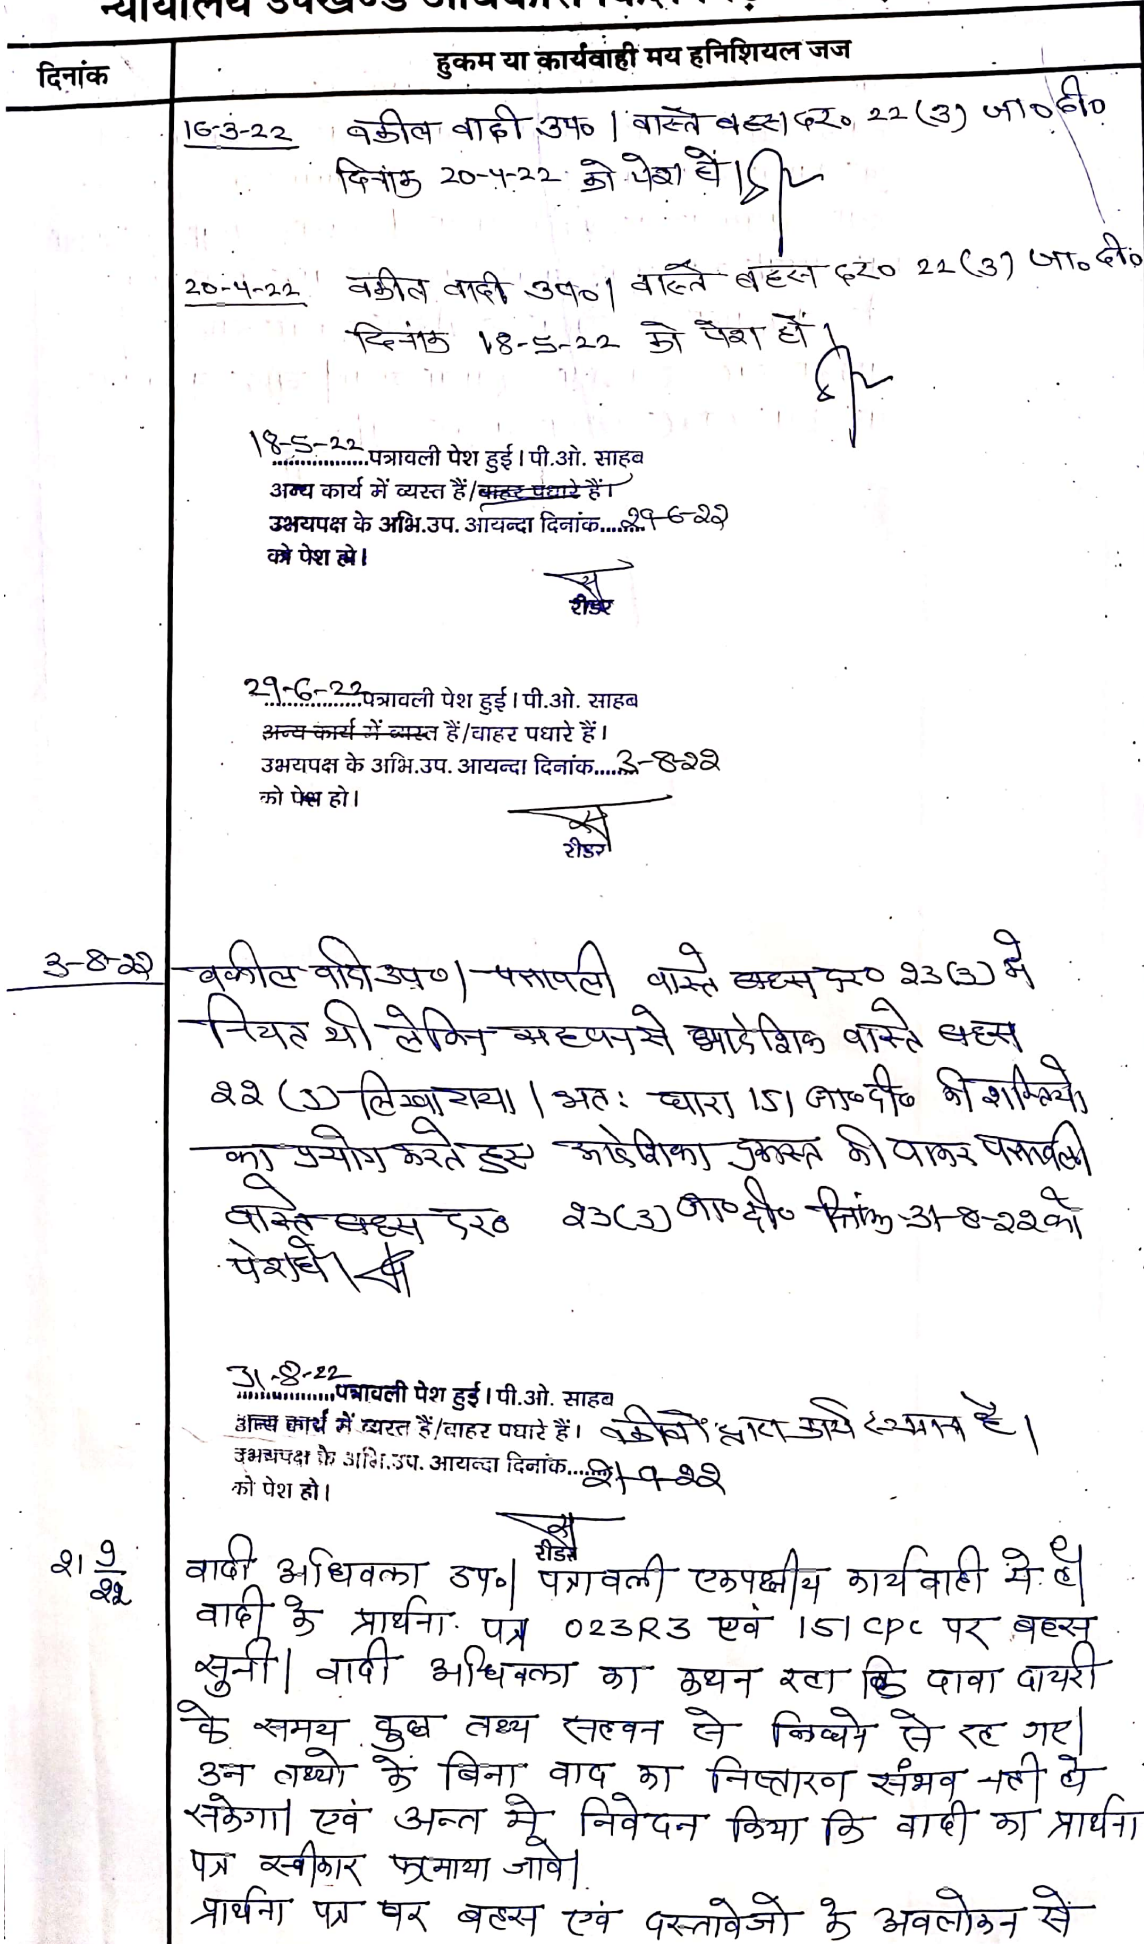 न्यायालय उपखण्ड अधिकारी
दिनांक
हुकम या कार्यवाही मय हनिशियल जज
16-3-22 वकील वादी उप० । वास्ते बहस दर० 22 (3) जा० दी०
दिनांक 20-4-22 को पेश हो ।
20-4-22 वकील वादी उप० । वास्ते बहस दर० 22 (3) जा० दी०
दिनांक 18-5-22 को पेश हो ।
18-5-22 पत्रावली पेश हुई । पी.ओ. साहब
अन्य कार्य में व्यस्त हैं/बाहर पधारे हैं।
उभयपक्ष के अभि.उप. आयन्दा दिनांक.......29-6-22
को पेश हो।
रीडर
29-6-22 पत्रावली पेश हुई । पी.ओ. साहब
अन्य कार्य में व्यस्त हैं/बाहर पधारे हैं।
उभयपक्ष के अभि.उप. आयन्दा दिनांक.......3-8-22
को पेश हो।
रीडर
3-8-22 वकील वादी उप० । पत्रावली वास्ते बहस दर० 23 (3) में
नियत थी लेकिन सहवन से आदेशिका वास्ते बहस
22 (3) लिखा गया । अतः धारा 151 जा० दी० की शक्तियों
का प्रयोग करते हुए आदेशिका की पत्रावली
वास्ते बहस दर० 23 (3) जा० दी० दिनांक 31-8-22 को
पेश हो ।
31-8-22 पत्रावली पेश हुई । पी.ओ. साहब
अन्य कार्य में व्यस्त हैं/बाहर पधारे हैं। वकीलों द्वारा कार्य स्थगन है ।
उभयपक्ष के अभि.उप. आयन्दा दिनांक.......21-9-22
को पेश हो।
रीडर
21 9/22 वादी अधिवक्ता उप० । पत्रावली एकपक्षीय कार्यवाही में है।
वादी के प्रार्थना पत्र O23R3 एवं 151 CPC पर बहस
सुनी । वादी अधिवक्ता का कथन रहा कि दावा दायरी
के समय कुछ तथ्य सहवन से लिखने से रह गए।
उन तथ्यो के बिना वाद का निस्तारण संभव नही हो
सकेगा। एवं अन्त में निवेदन किया कि वादी का प्रार्थना
पत्र स्वीकार फरमाया जावे।
प्रार्थना पत्र पर बहस एवं दस्तावेजो के अवलोकन से